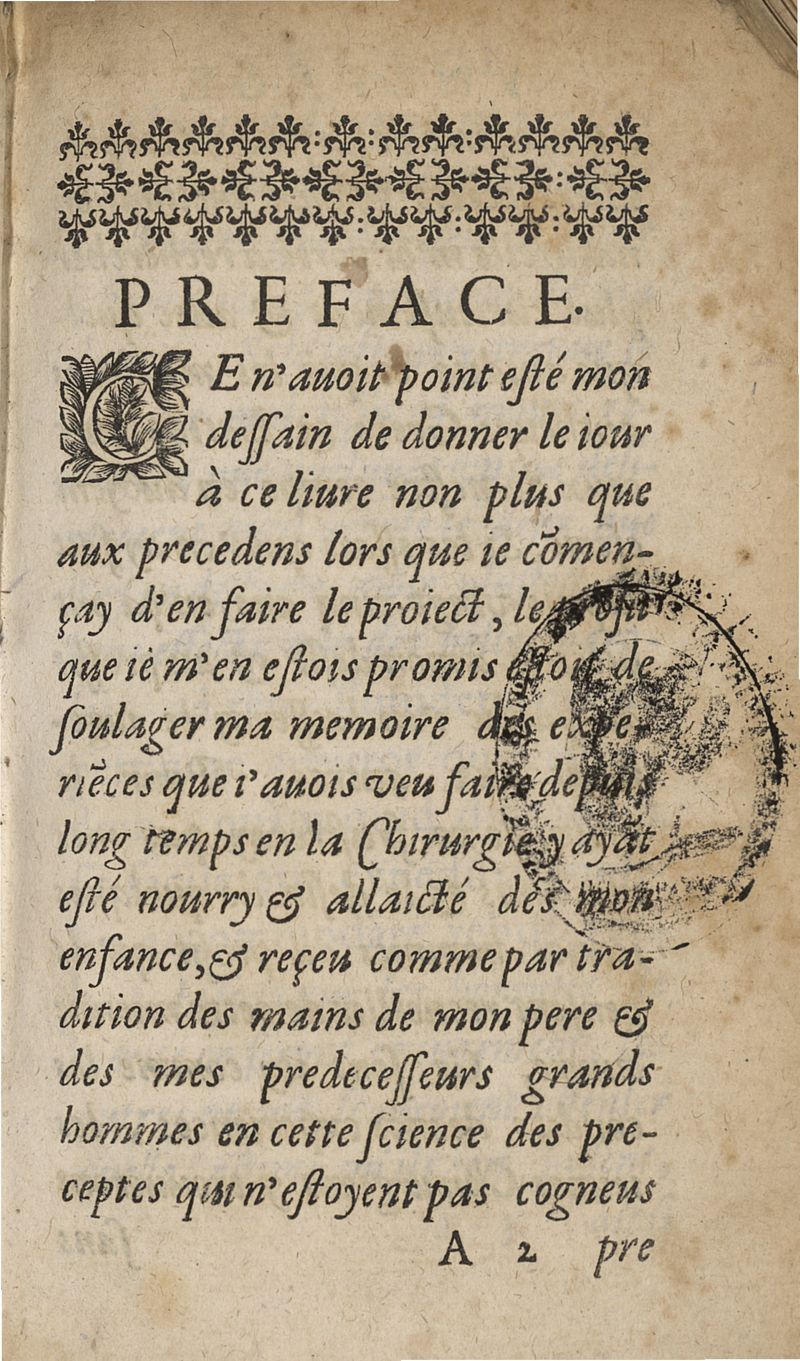 PREFACE.
CE n'auoit point eſté mon
deſſain de donner le iour
à ce liure non plus que
aux precedens lors que ie cõmen-
çay d'en faire le proiect, le profit
que iè m'en eſtois promis eſtoit de
ſoulager ma memoire des expe-
riẽces que i'auois veu faire depuis
long temps en la Chirurgie y ayãt
eſté nourry & allaicté dés mon
enfance, & reçeu comme par tra-
dition des mains de mon pere &
des mes predeceſſeurs grands
hommes en cette ſcience des pre-
ceptes qui n'eſtoyent pas cogneus
A 2 pre